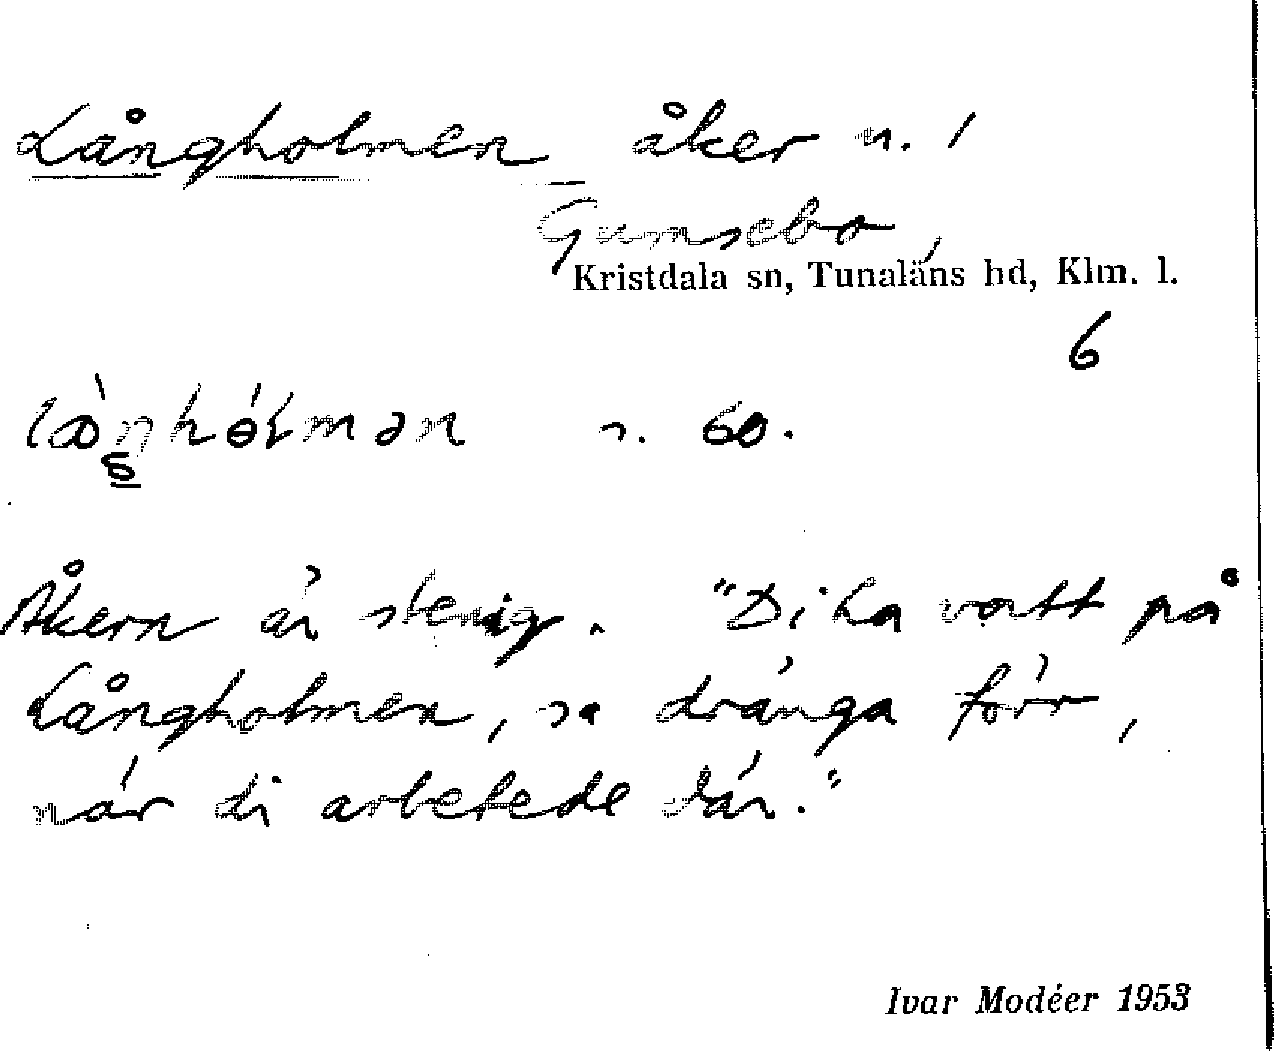 Långholmen åker n. 1
Gumsebo,
Kristdala sn, Tunaläns hd, Klm. l.
6
s. 60.
Åkern är stenig. "Di ha vatt på
Långholmen, sa dränga förr,
när di arbetede där."
Ivar Modéer 1953